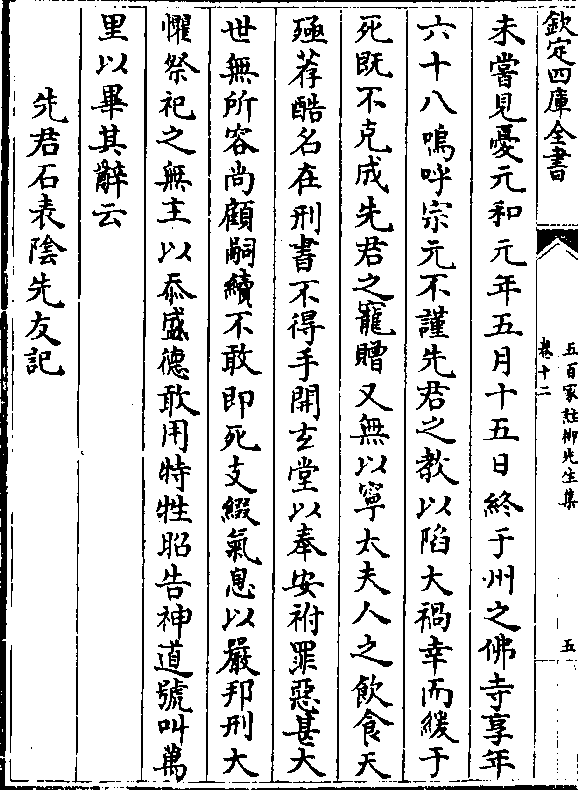 欽定四庫全書
五百家註柳先生集
卷十二
五
未嘗見憂元和元年五月十五日終于州之佛寺享年
六十八嗚呼宗元不謹先君之教以陷大禍幸而緩于
死既不克成先君之寵贈又無以寧太夫人之飲食天
殛荐酷名在刑書不得手開玄堂以奉安祔罪惡甚大
世無所容尚顧嗣續不敢即死支綴氣息以嚴邦刑大
懼祭祀之無主以忝盛德敢用特牲昭告神道號叫萬
里以畢其辭云
先君石表陰先友記